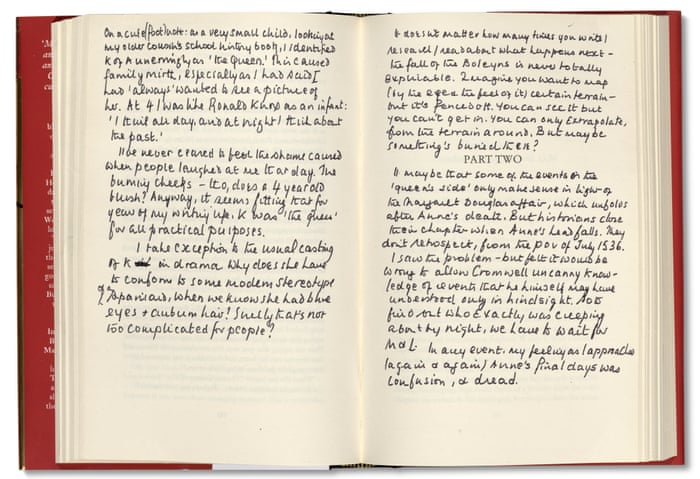 On a cute (foot) note: as a very small child, looking at
my older cousin's school history book, I identified
K of A unerringly as 'the Queen.' This caused
family mirth, especially as I had said I
had 'always' wanted to see a picture of
her. At 4 I was like Ronald Knox as an infant:
'I think all day, and at night I think about
the past.'
I've never ceased to feel the shame caused
when people laughed at me that day. The
burning cheeks – tho, does a 4 year old
blush? Anyway, it seems fitting that for
years of my writing life, K was 'the queen'
for all practical purposes.
I take exception to the usual casting
of K in drama. Why does she have
to conform to some modern stereotype
of a Spaniard, when we know she had blue
eyes + auburn hair? Surely that's not
too complicated for people?
It doesn't matter how many times you write /
research / read about what happens next –
the fall of the Boleyns is never totally
explicable. I imagine you want to map
(by the eye & the feel of it) certain terrain –
but it's fenced off. You can see it but
you can't get in. You can only extrapolate,
from the terrain around. But maybe
something's buried there?
PART TWO
It may be that some of the events on the
'queen's side' only make sense in light of
the Margaret Douglas affair, which unfolds
after Anne's death. But historians close
their chapter when Anne's head falls. They
don't retrospect, from the pov of July, 1536.
I saw the problem – but felt it would be
wrong to allow Cromwell uncanny know-
ledge of events that he himself may have
understood only in hindsight. So to
find out who exactly was creeping
about by night, we have to wait for
M & L. In any event, my feeling as I approached
(again & again) Anne's final days was
confusion, & dread.